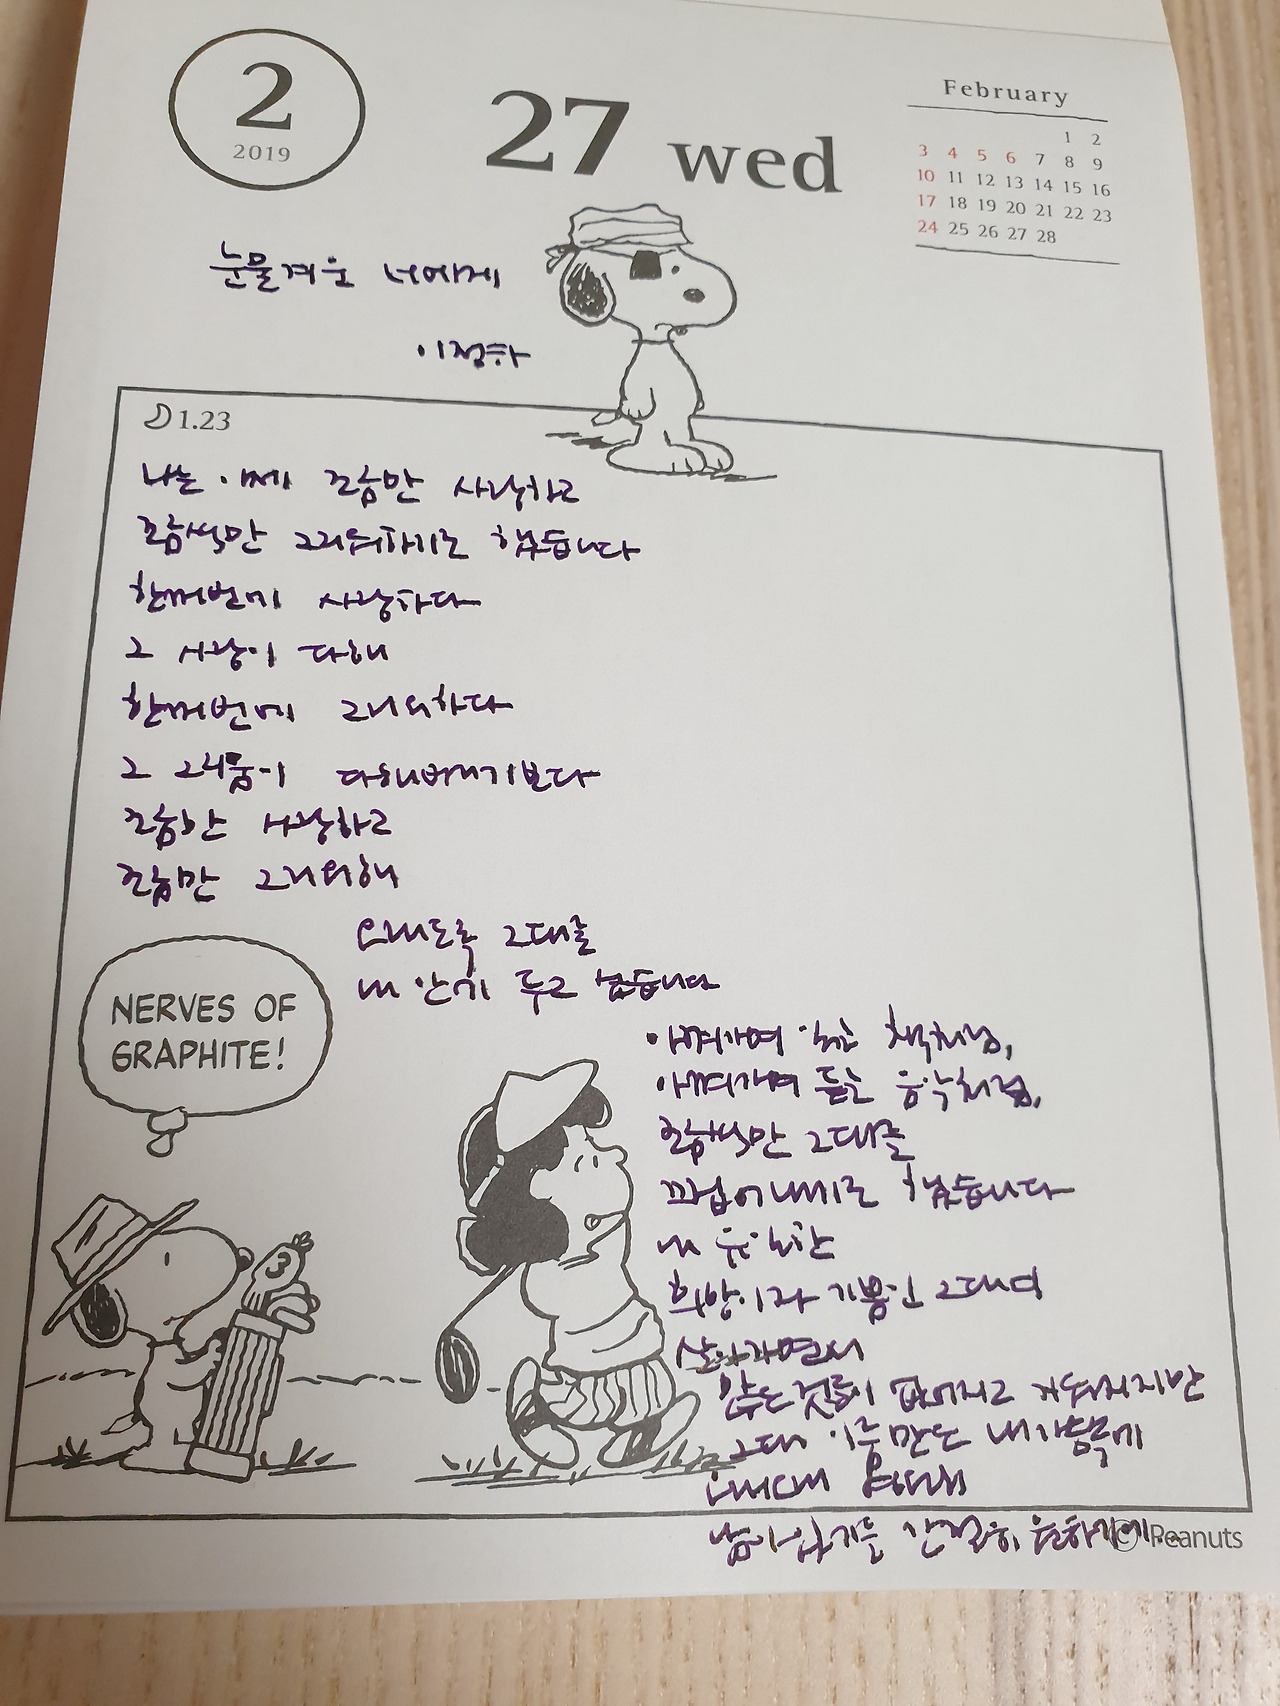 2
2019
27 wed
February
1 2
3 4 5 6 7 8 9
10 11 12 13 14 15 16
17 18 19 20 21 22 23
24 25 26 27 28
눈물겨운 너에게
이정하
1.23
나는 이제 조금만 사랑하고
조금씩만 그리워하기로 했습니다
한꺼번에 사랑하다
그 사랑이 다해
한꺼번에 그리워하다
그 그리움이 다해버리기보다
조금만 사랑하고
조금만 그리워해
오래도록 그대를
내 안에 두고 싶습니다
아껴가며 읽는 책처럼,
아껴가며 듣는 음악처럼,
조금씩만 그대를
끄집어내기로 했습니다
내 유일한
희망이자 기쁨인 그대여
살아가면서
많은 것들이 없어지고 지워지지만
그대 이름만은 내 가슴속에
오래오래
남아있기를 간절히 원하기에..
NERVES OF
GRAPHITE!
© Peanuts